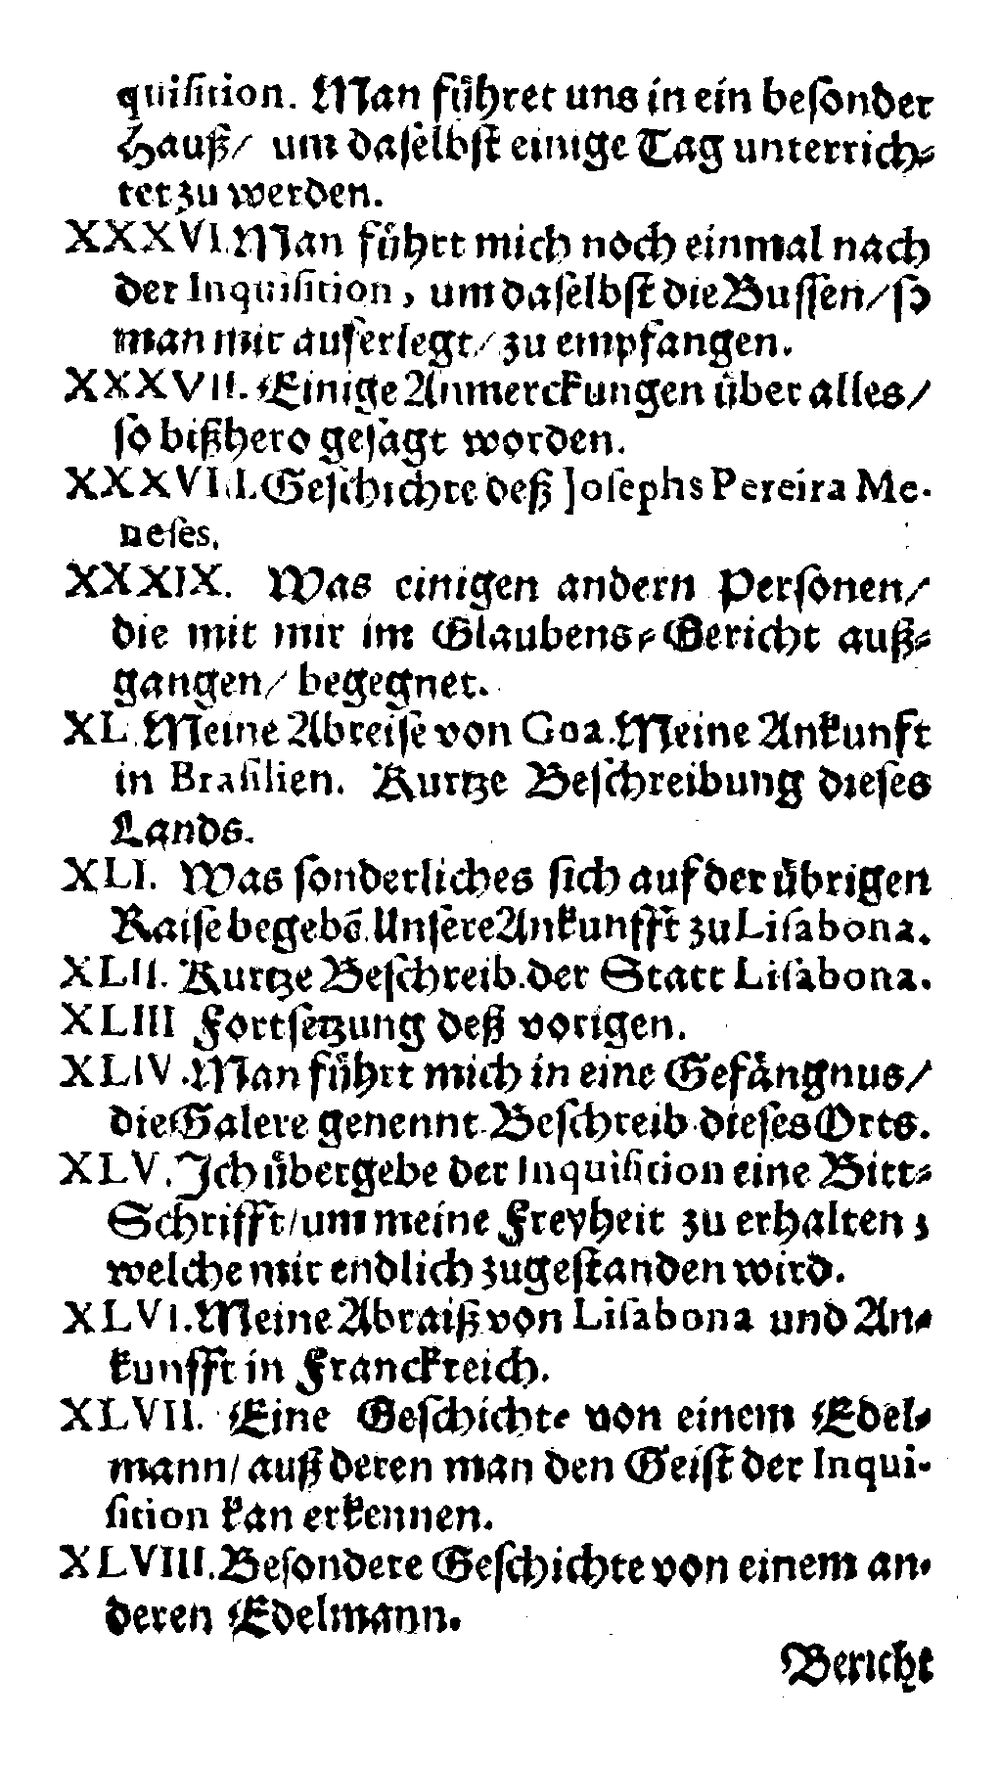 quiſition. Man fuͤhret uns in ein beſonder
Hauß/ um daſelbſt einige Tag unterrich⸗
tet zu werden.
XXXVI. Man fuͤhrt mich noch einmal nach
der Inquiſition, um daſelbſt die Buſſen/ ſo
man mir auferlegt/ zu empfangen.
XXXVII. Einige Anmerckungen uͤber alles/
ſo bißhero geſagt worden.
XXXVIII. Geſchichte deß Joſephs Pereira Me-
neſes.
XXXIX. Was einigen andern Perſonen/
die mit mir im Glaubens⸗Gericht auß⸗
gangen/ begegnet.
XL. Meine Abreiſe von Goa. Meine Ankunft
in Braſilien. Kurtze Beſchreibung dieſes
Lands.
XLI. Was ſonderliches ſich auf der uͤbrigen
Raiſe begebē. Unſere Ankunfft zu Liſabona.
XLII. Kurtze Beſchreib. der Statt Liſabona.
XLIII Fortſetzung deß vorigen.
XLIV. Man fuͤhrt mich in eine Gefaͤngnus/
die Galere genennt. Beſchreib. dieſes Orts.
XLV. Ich uͤbergebe der Inquiſition eine Bitt⸗
Schrifft/ um meine Freyheit zu erhalten;
welche mir endlich zugeſtanden wird.
XLVI. Meine Abraiß von Liſabona und An⸗
kunfft in Franckreich.
XLVII. Eine Geſchichte von einem Edel⸗
mann/ auß deren man den Geiſt der Inqui-
ſition kan erkennen.
XLVIII. Beſondere Geſchichte von einem an⸗
deren Edelmann.
Bericht